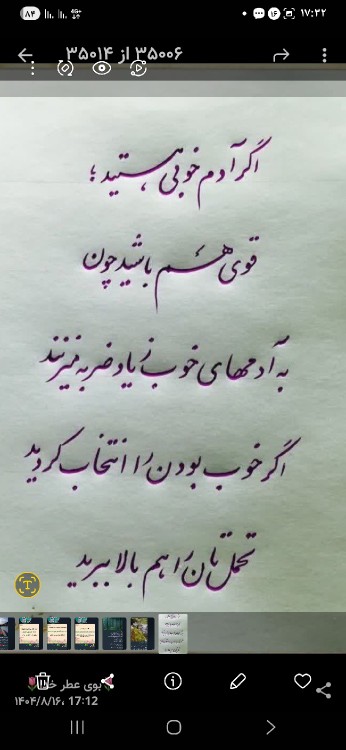 ۸۴
4G+
۱۶
۱۷:۳۲
۳۵۰۰۶ از ۳۵۰۱۴
اگر آدم خوبی هستید؛
قوی هم باشید چون
به آدمهای خوب زیاد ضربه میزنند
اگر خوب بودن را انتخاب کردید
تحمل‌تان را هم بالا ببرید
T
بوی عطر
۱۴۰۴/۸/۱۶، 17:12